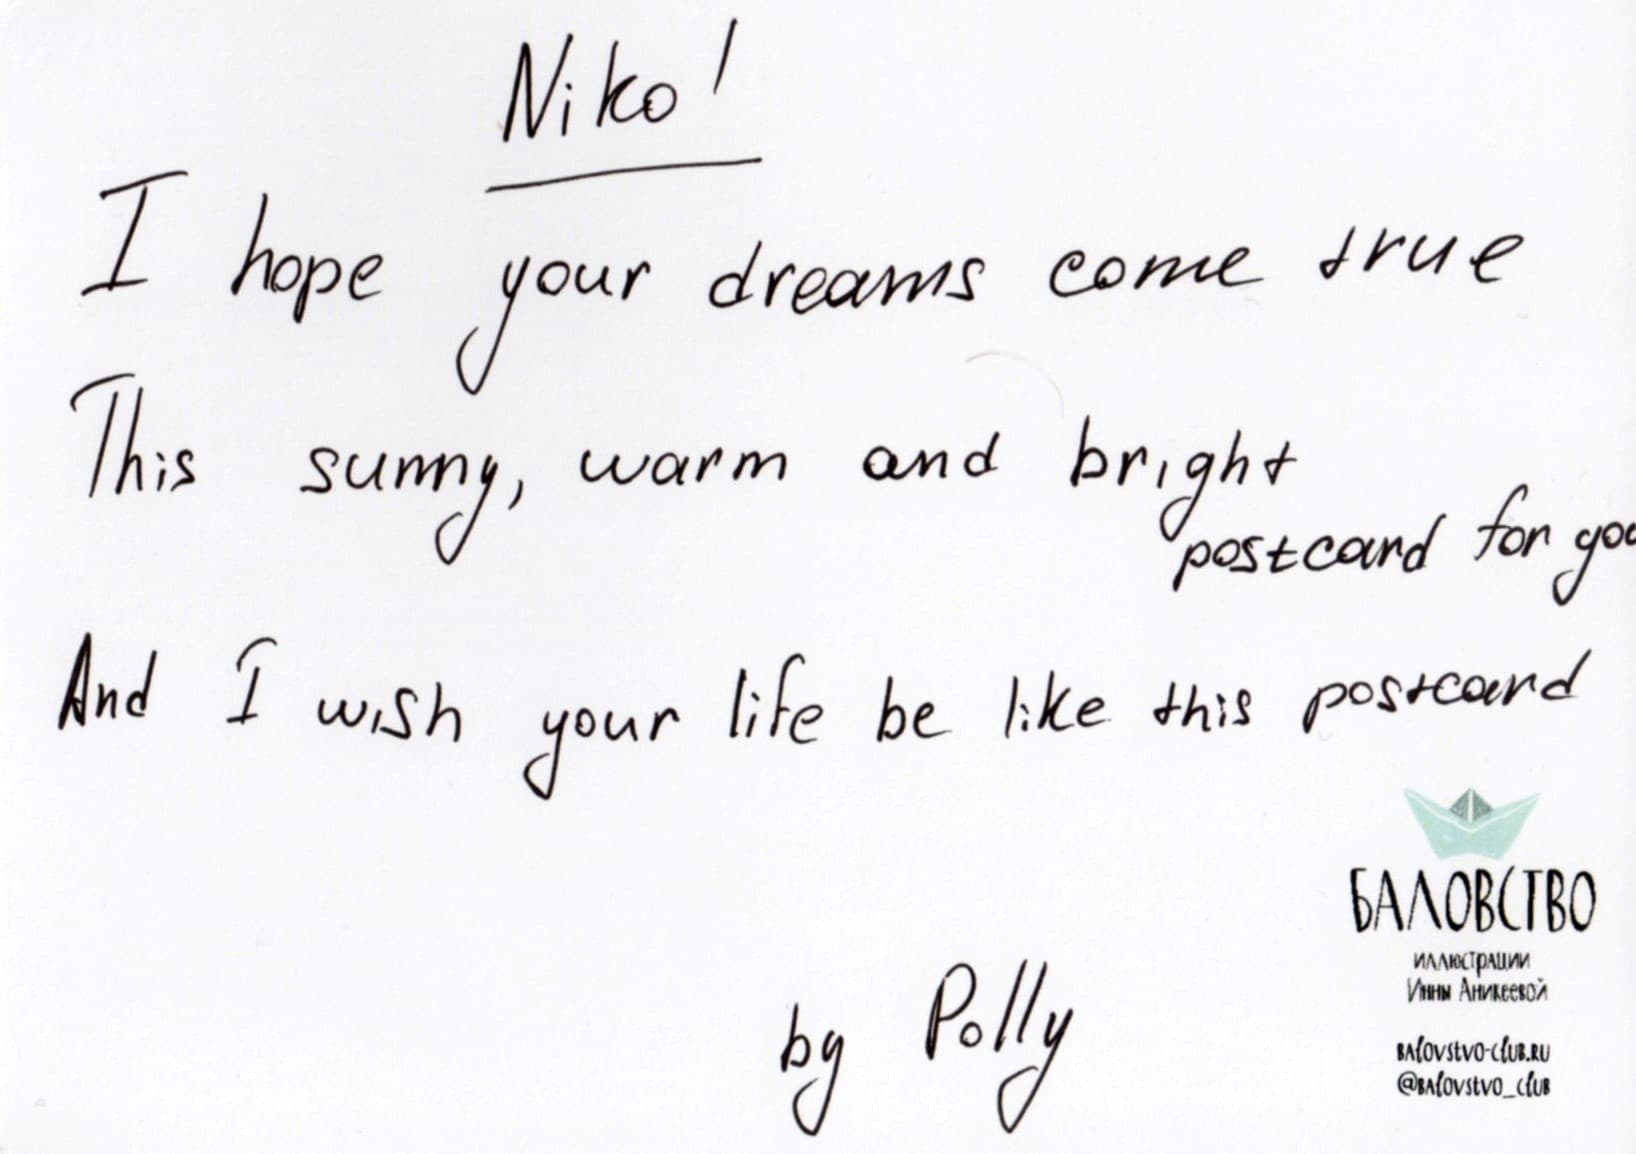 Niko!
I hope your dreams come true
This sunny, warm and bright
postcard for you
And I wish your life be like this postcard
by Polly
БАЛОВСТВО
иллюстрации
Инны Аникеевой
BALOVSTVO-CLUB.RU
@BALOVSTVO_CLUB